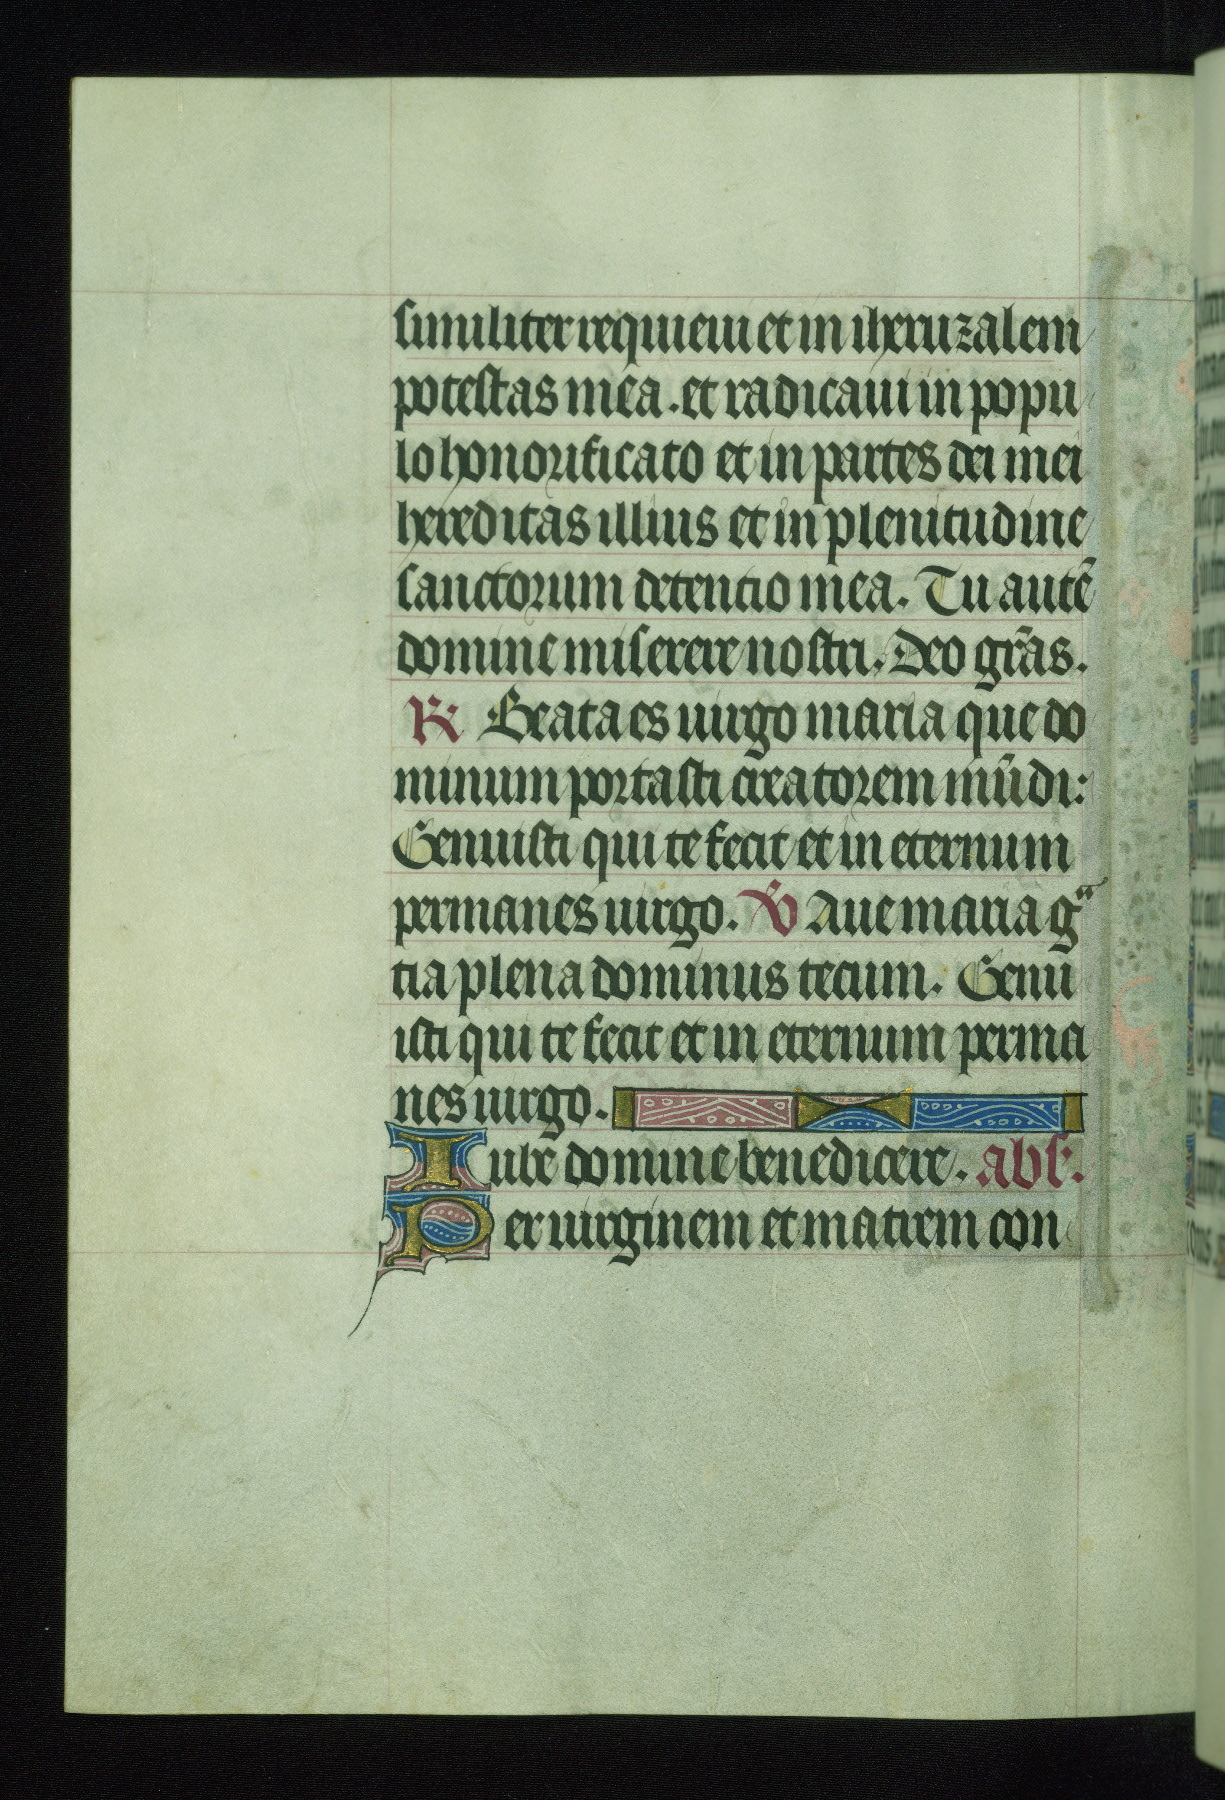 similiter requieui et in iheruzalem
potestas mea. et radicaui in popu
lo honorificato et in partes dei mei
hereditas illius et in plenitudine
sanctorum detentio mea. Tu autē
domine miserere nostri. Deo gr̄as.
℟ Beata es uirgo maria que do
minum portasti creatorem mūdi:
Genuisti qui te fecit et in eternum
permanes uirgo. ℣ Aue maria gᵃ
tia plena dominus tecum. Genu
isti qui te fecit et in eternum perma
nes uirgo.
Iube domine benedicere. abs.
Per uirginem et matrem con